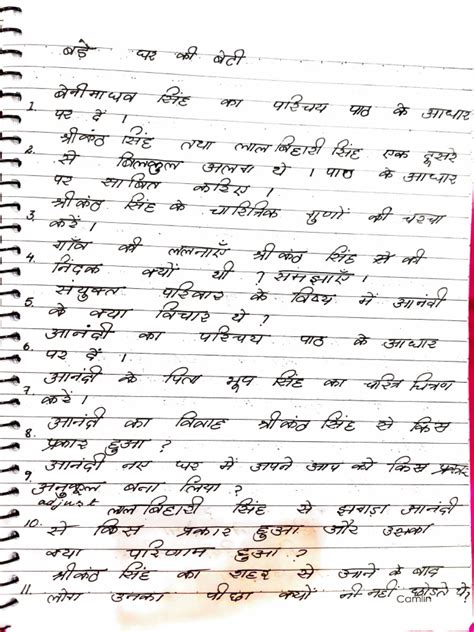 बड़े घर की बेटी
1. बेनीमाधव सिंह का परिचय पाठ के आधार
पर दें ।
2. श्रीकंठ सिंह तथा लाल बिहारी सिंह एक दूसरे
से बिलकुल अलग थे । पाठ के आधार
पर साबित करिए ।
3. श्रीकंठ सिंह के चारित्रिक गुणों की चरचा
करें ।
4. गाँव की ललनाएँ श्रीकंठ सिंह से की
निंदक क्यों थी ? समझाएँ ।
5. संयुक्त परिवार के विषय में आनंदी
के क्या विचार थे ?
6. आनंदी का परिचय पाठ के आधार
पर दें ।
7. आनंदी के पिता भूप सिंह का चरित्र चित्रण
करें ।
8. आनंदी का विवाह श्रीकंठ सिंह से किस
प्रकार हुआ ?
9. आनंदी नए घर में अपने आप को किस प्रकार
अनुकूल बना लिया ?
adjust
10. लाल बिहारी सिंह से झगड़ा आनंदी
से किस प्रकार हुआ और उसका
क्या परिणाम हुआ ?
11. श्रीकंठ सिंह का शहर से आने के बाद
लोग उनका पीछा क्यों नहीं छोड़ते थे?
Camlin